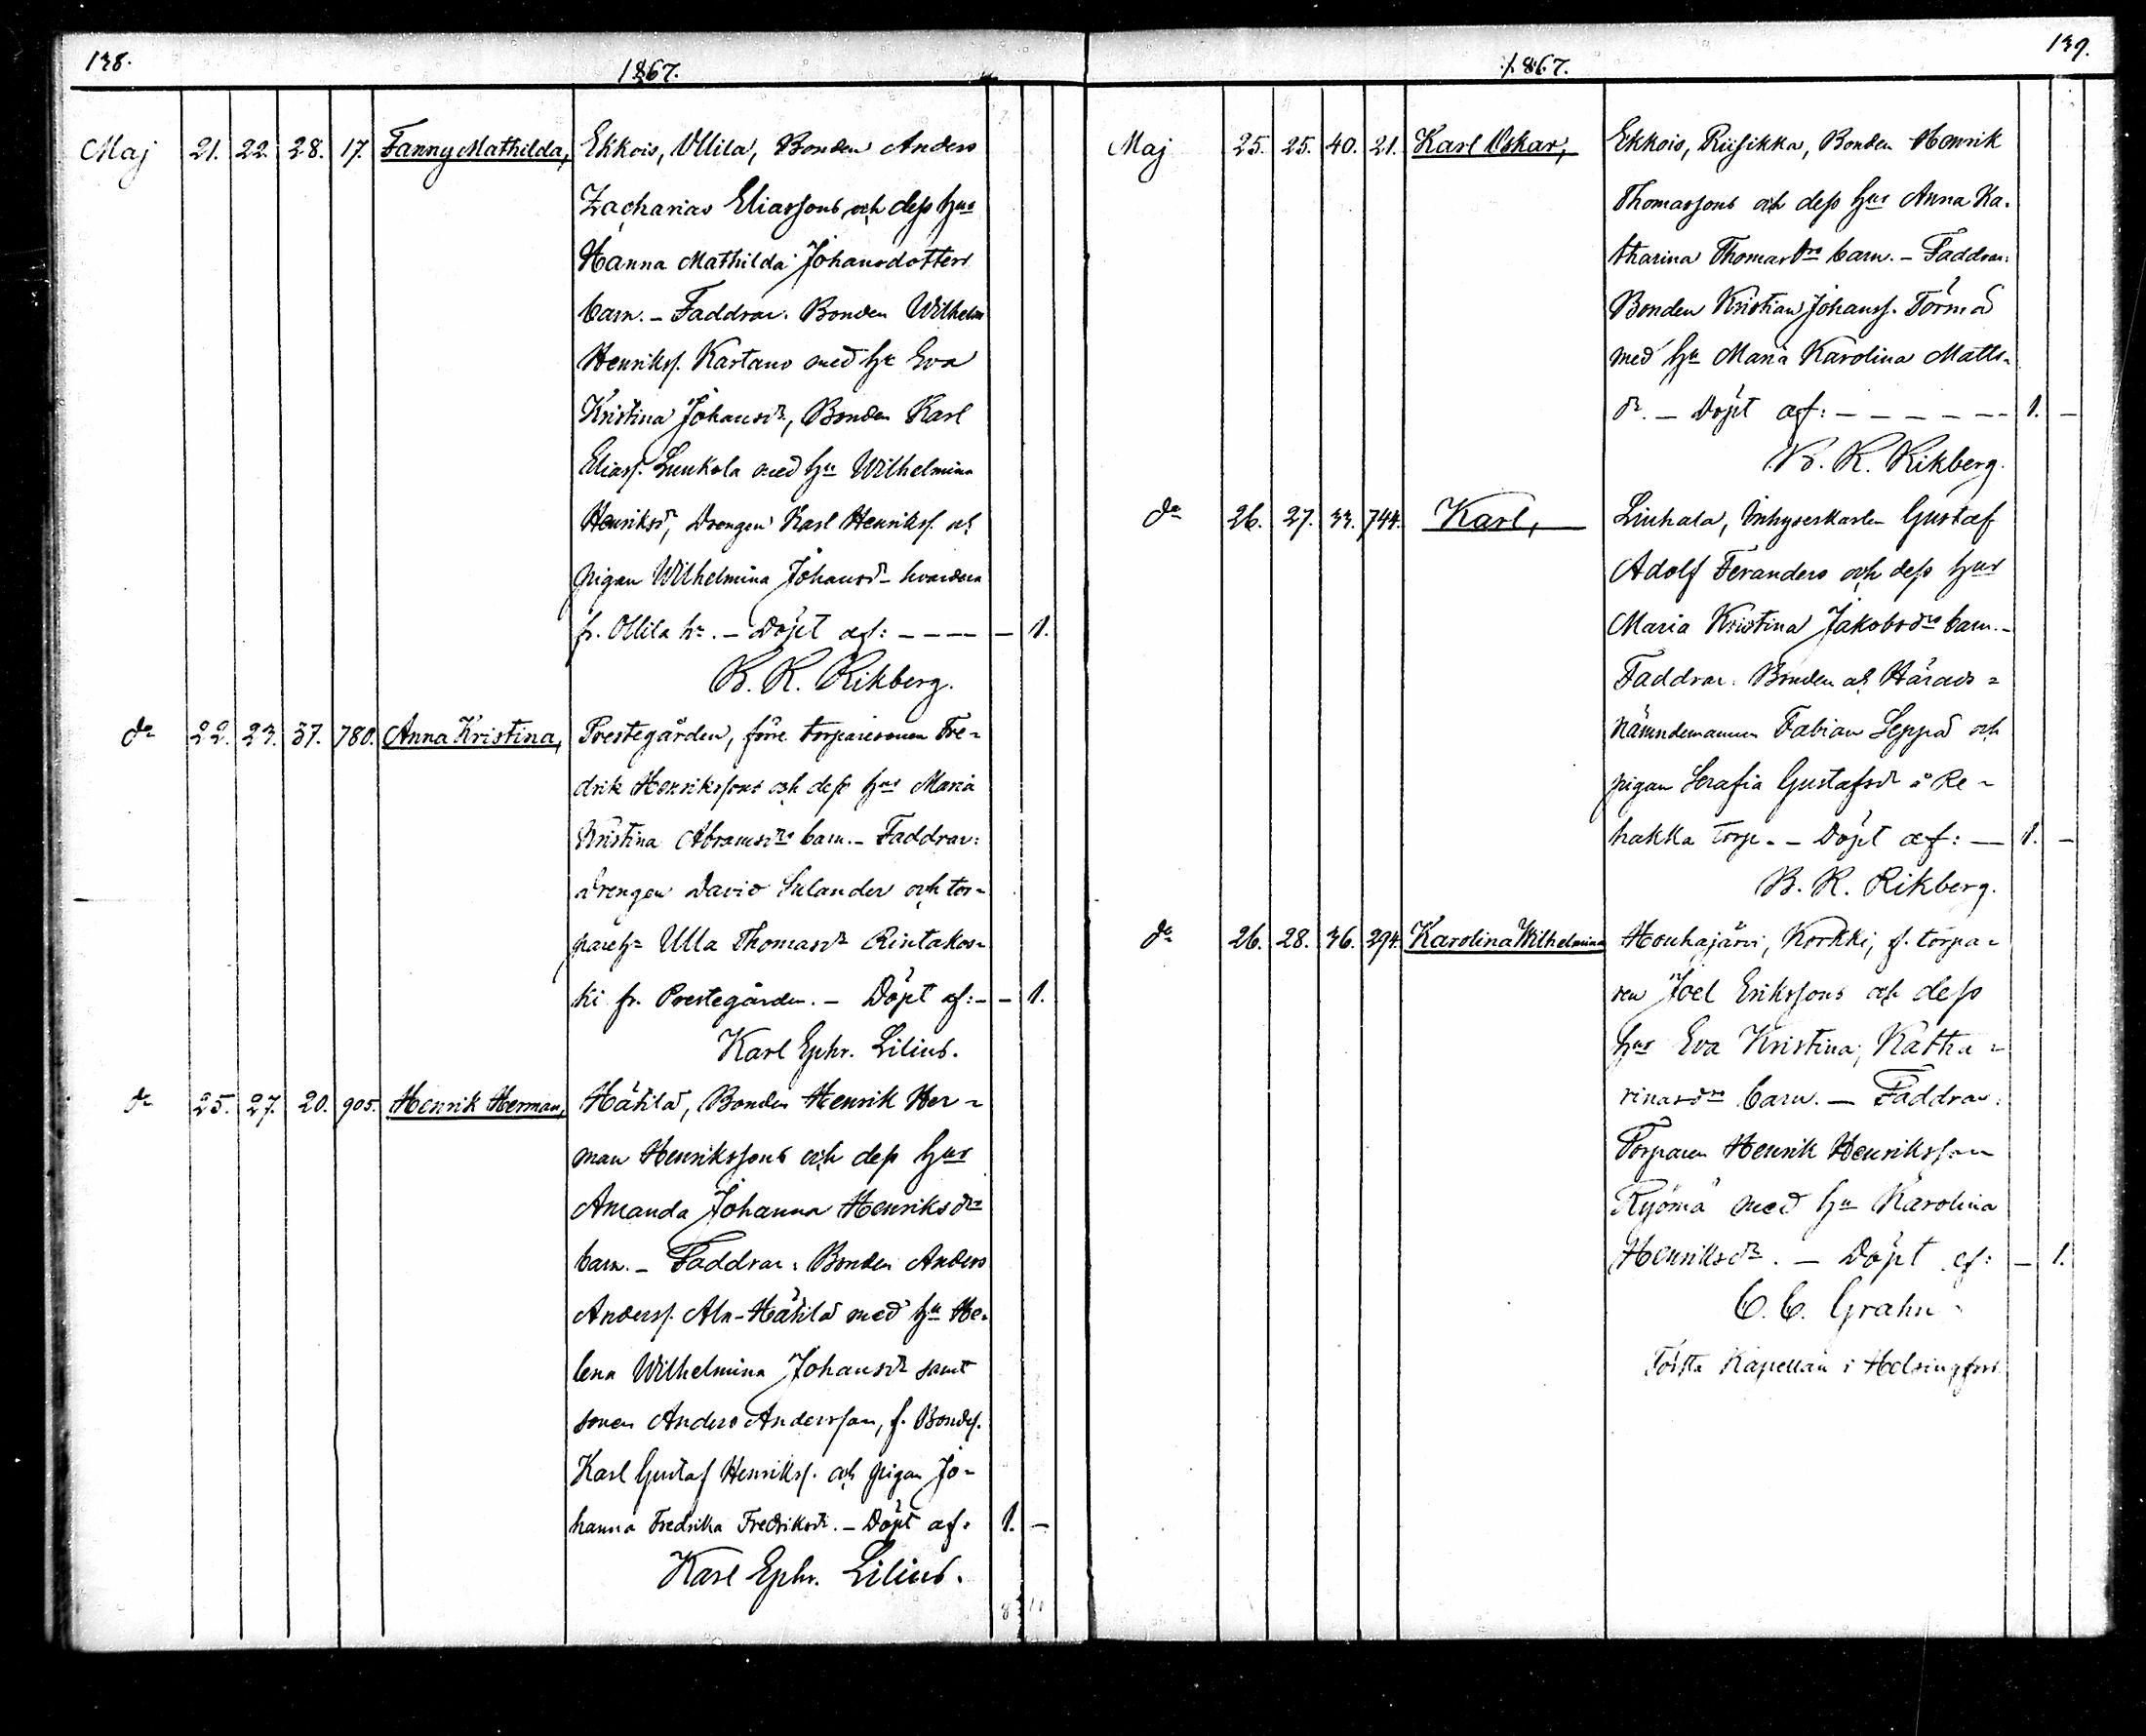 138.
1867.
Maj 21. 22. 28. 17. Fanny Mathilda, Ekkois, Ollila, Bonden Anders
Zacharias Eliassons och dess hus
Hanna Mathilda Johansdotters
barn. – Faddrar: Bonden Wilhelm
Henrikss. Kartano med hu Eva
Kristina Johansdr, Bonden Karl
Eliass. Luukola med hu Wilhelmina
Henriksdr, Drengen Karl Henrikss. och
pigan Wilhelmina Johansdr hvardera
fr. Ollila hn. – Döpt af: – – – – – 1.
K. K. Rikberg.
do 22. 23. 37. 780. Anna Kristina, Prestegården, förre torparesonen Fre-
drik Henrikssons och dess hus Maria
Kristina Abramsdrs barn. – Faddrar:
drengen David Sulander och tor-
pareh. Ulla Thomasdr Rintakos-
ki fr. Prestegården. – Döpt af: – – 1.
Karl Ephr. Lilius.
do 25. 27. 20. 905. Henrik Herman, Hätilä, Bonden Henrik Her-
man Henrikssons och dess hus
Amanda Johanna Henriksdrs
barn. – Faddrar: Bonden Anders
Anderss. Ala-Hätilä med hu He-
lena Wilhelmina Johansdr samt
sonen Anders Andersson, f. Bondes.
Karl Gustaf Henrikss. och pigan Jo-
hanna Fredrika Fredriksdr. – Döpt af: 1. –
Karl Ephr. Lilius.
139.
1867.
Maj 25. 25. 40. 21. Karl Oskar, Ekkois, Riisikka, Bonden Henrik
Thomassons och dess hus Anna Ka-
tharina Thomasdrs barn. – Faddrar:
Bonden Kristian Johanss. Törmä
med hu Maria Karolina Matts-
dr. – Döpt af: – – – – – – 1. –
K. K. Rikberg.
do 26. 27. 33. 744. Karl, Liuhala, Inhyseskarlen Gustaf
Adolf Feranders och dess hus
Maria Kristina Jakobsdrs barn. –
Faddrar: Bonden och Härads-
nämndemannen Fabian Seppä och
pigan Serafia Gustafsdr å Re-
hakka torp. – Döpt af: – 1. –
K. K. Rikberg.
do 26. 28. 36. 294. Karolina Wilhelmina Houhajärvi, Korkki, f. torpa-
ren Joel Erikssons och dess
hus Eva Kristina, Katha-
rinasdrs barn. – Faddrar:
Torparen Henrik Henriksson
Ryömä med hu Karolina
Henriksdr. – Döpt af: – 1.
C. C. Grahn
Första Kapellan i Helsingfors